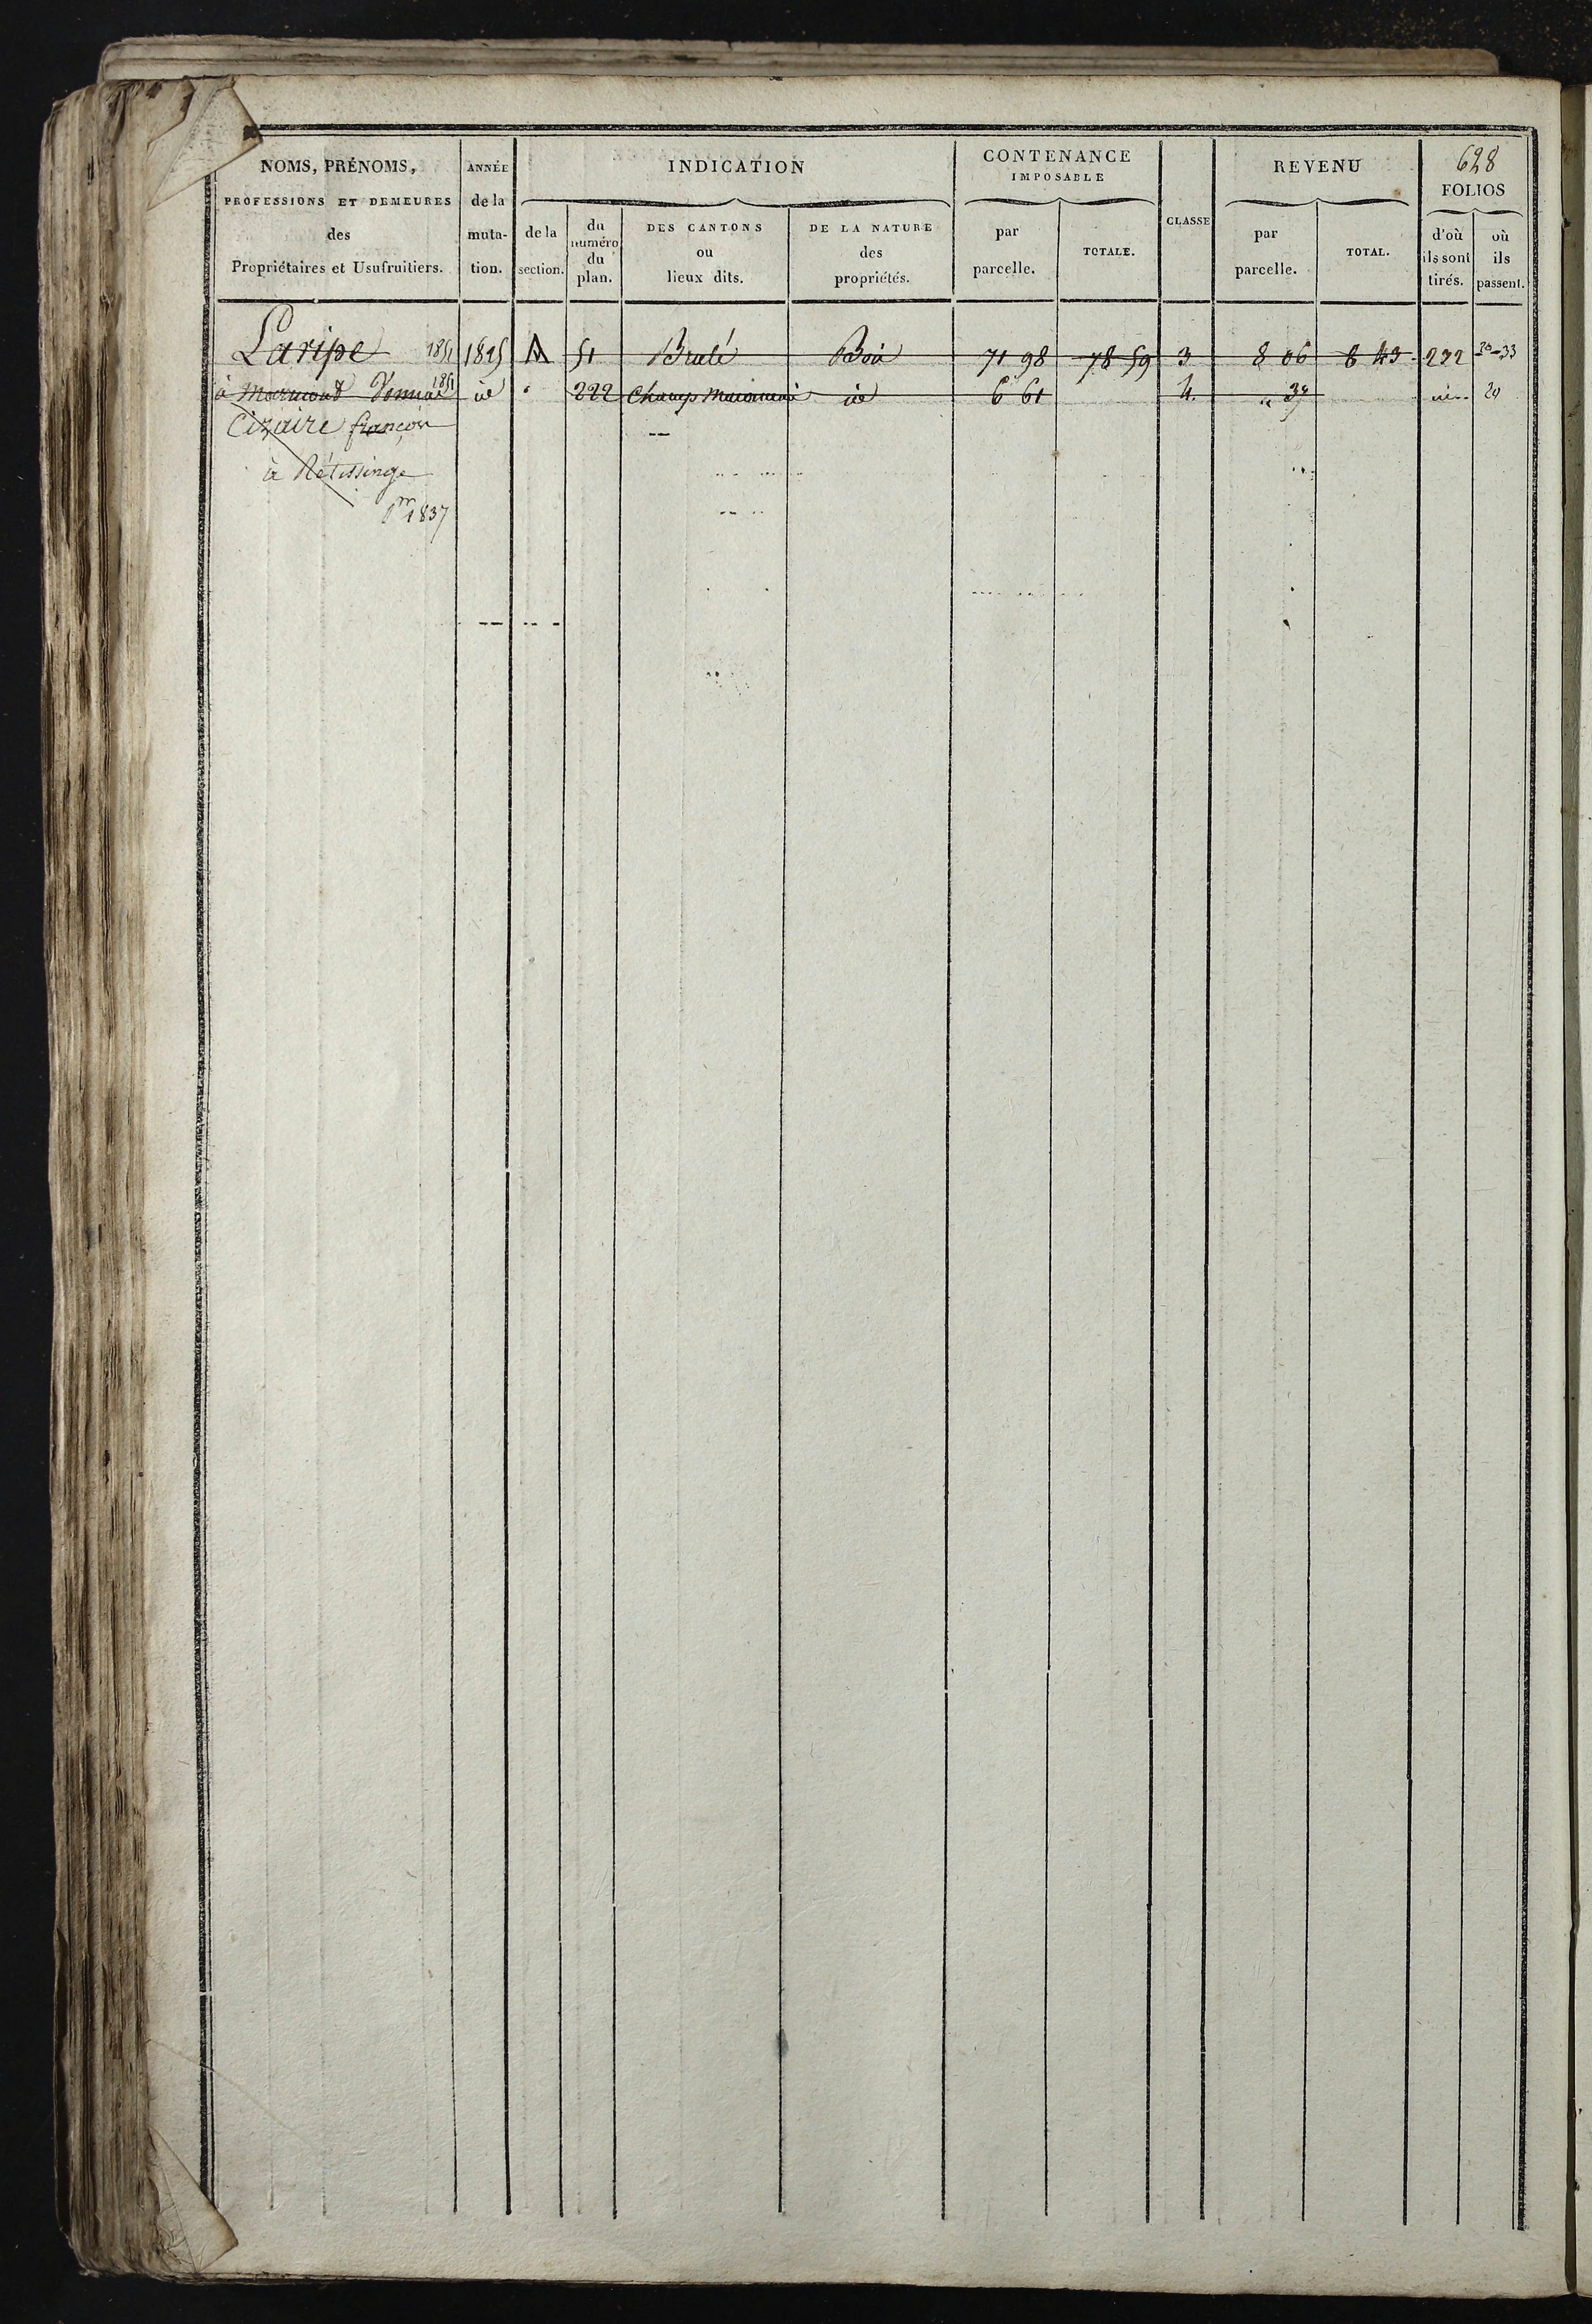 628
NOMS, PRÉNOMS, ANNÉE INDICATION CONTENANCE REVENU FOLIOS
IMPOSABLE
PROFESSIONS ET DEMEURES de la
des muta- de la du DES CANTONS DE LA NATURE par TOTALE. CLASSE par TOTAL. d'où où
numéro ou des ils sont ils
Propriétaires et Usufruitiers. tion. section. du lieux dits. propriétés. parcelle. parcelle. tirés. passent.
plan.
Laripe 1851 1825 A 51 Brulé Bois 71 98 78 59 3 8 06 8 43 232 20-33
à 1851 id " 222 Champ id 6 61 4. " 37 id 20
Cizaire françois
à Rétissinge
1837